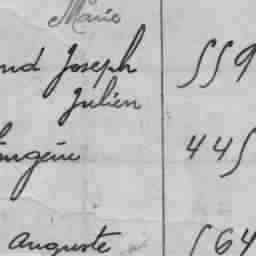 Mario
nd Joseph 559
Julien
Eugène 445
Auguste 164